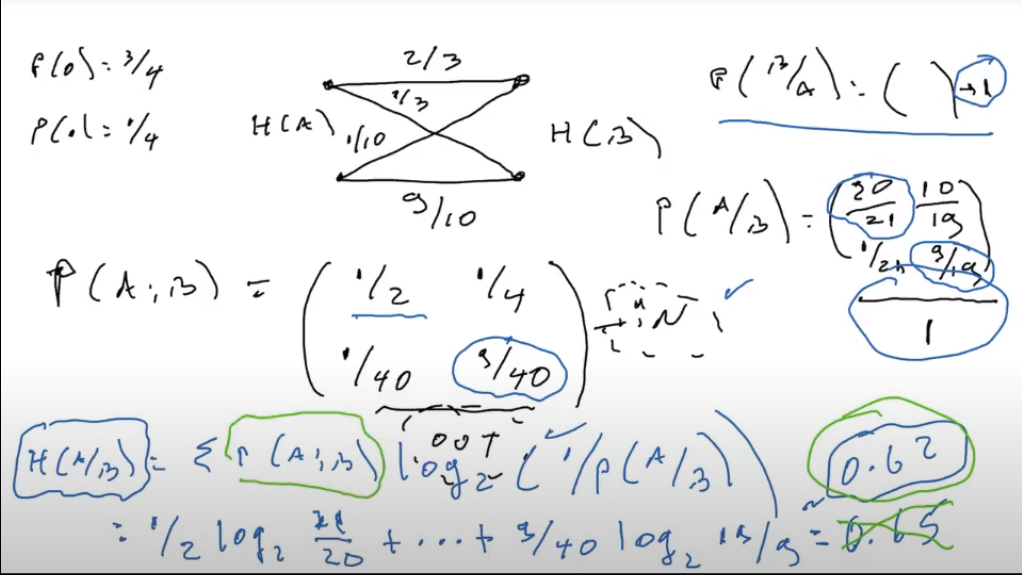 P(0) = 3/4
P(1) = 1/4
2/3
1/3
H(A)
1/10
9/10
H(B)
P(B/A) = ( ) → 1
P(A/B) = ( 20/21 10/19
1/21 9/19 )
1
P(A;B) = ( 1/2 1/4
1/40 9/40 )
IN
OUT
H(A/B) = Σ P(A;B) log2 (1/P(A/B))
0.62
= 1/2 log2 21/20 + ... + 9/40 log2 19/9 = 0.65